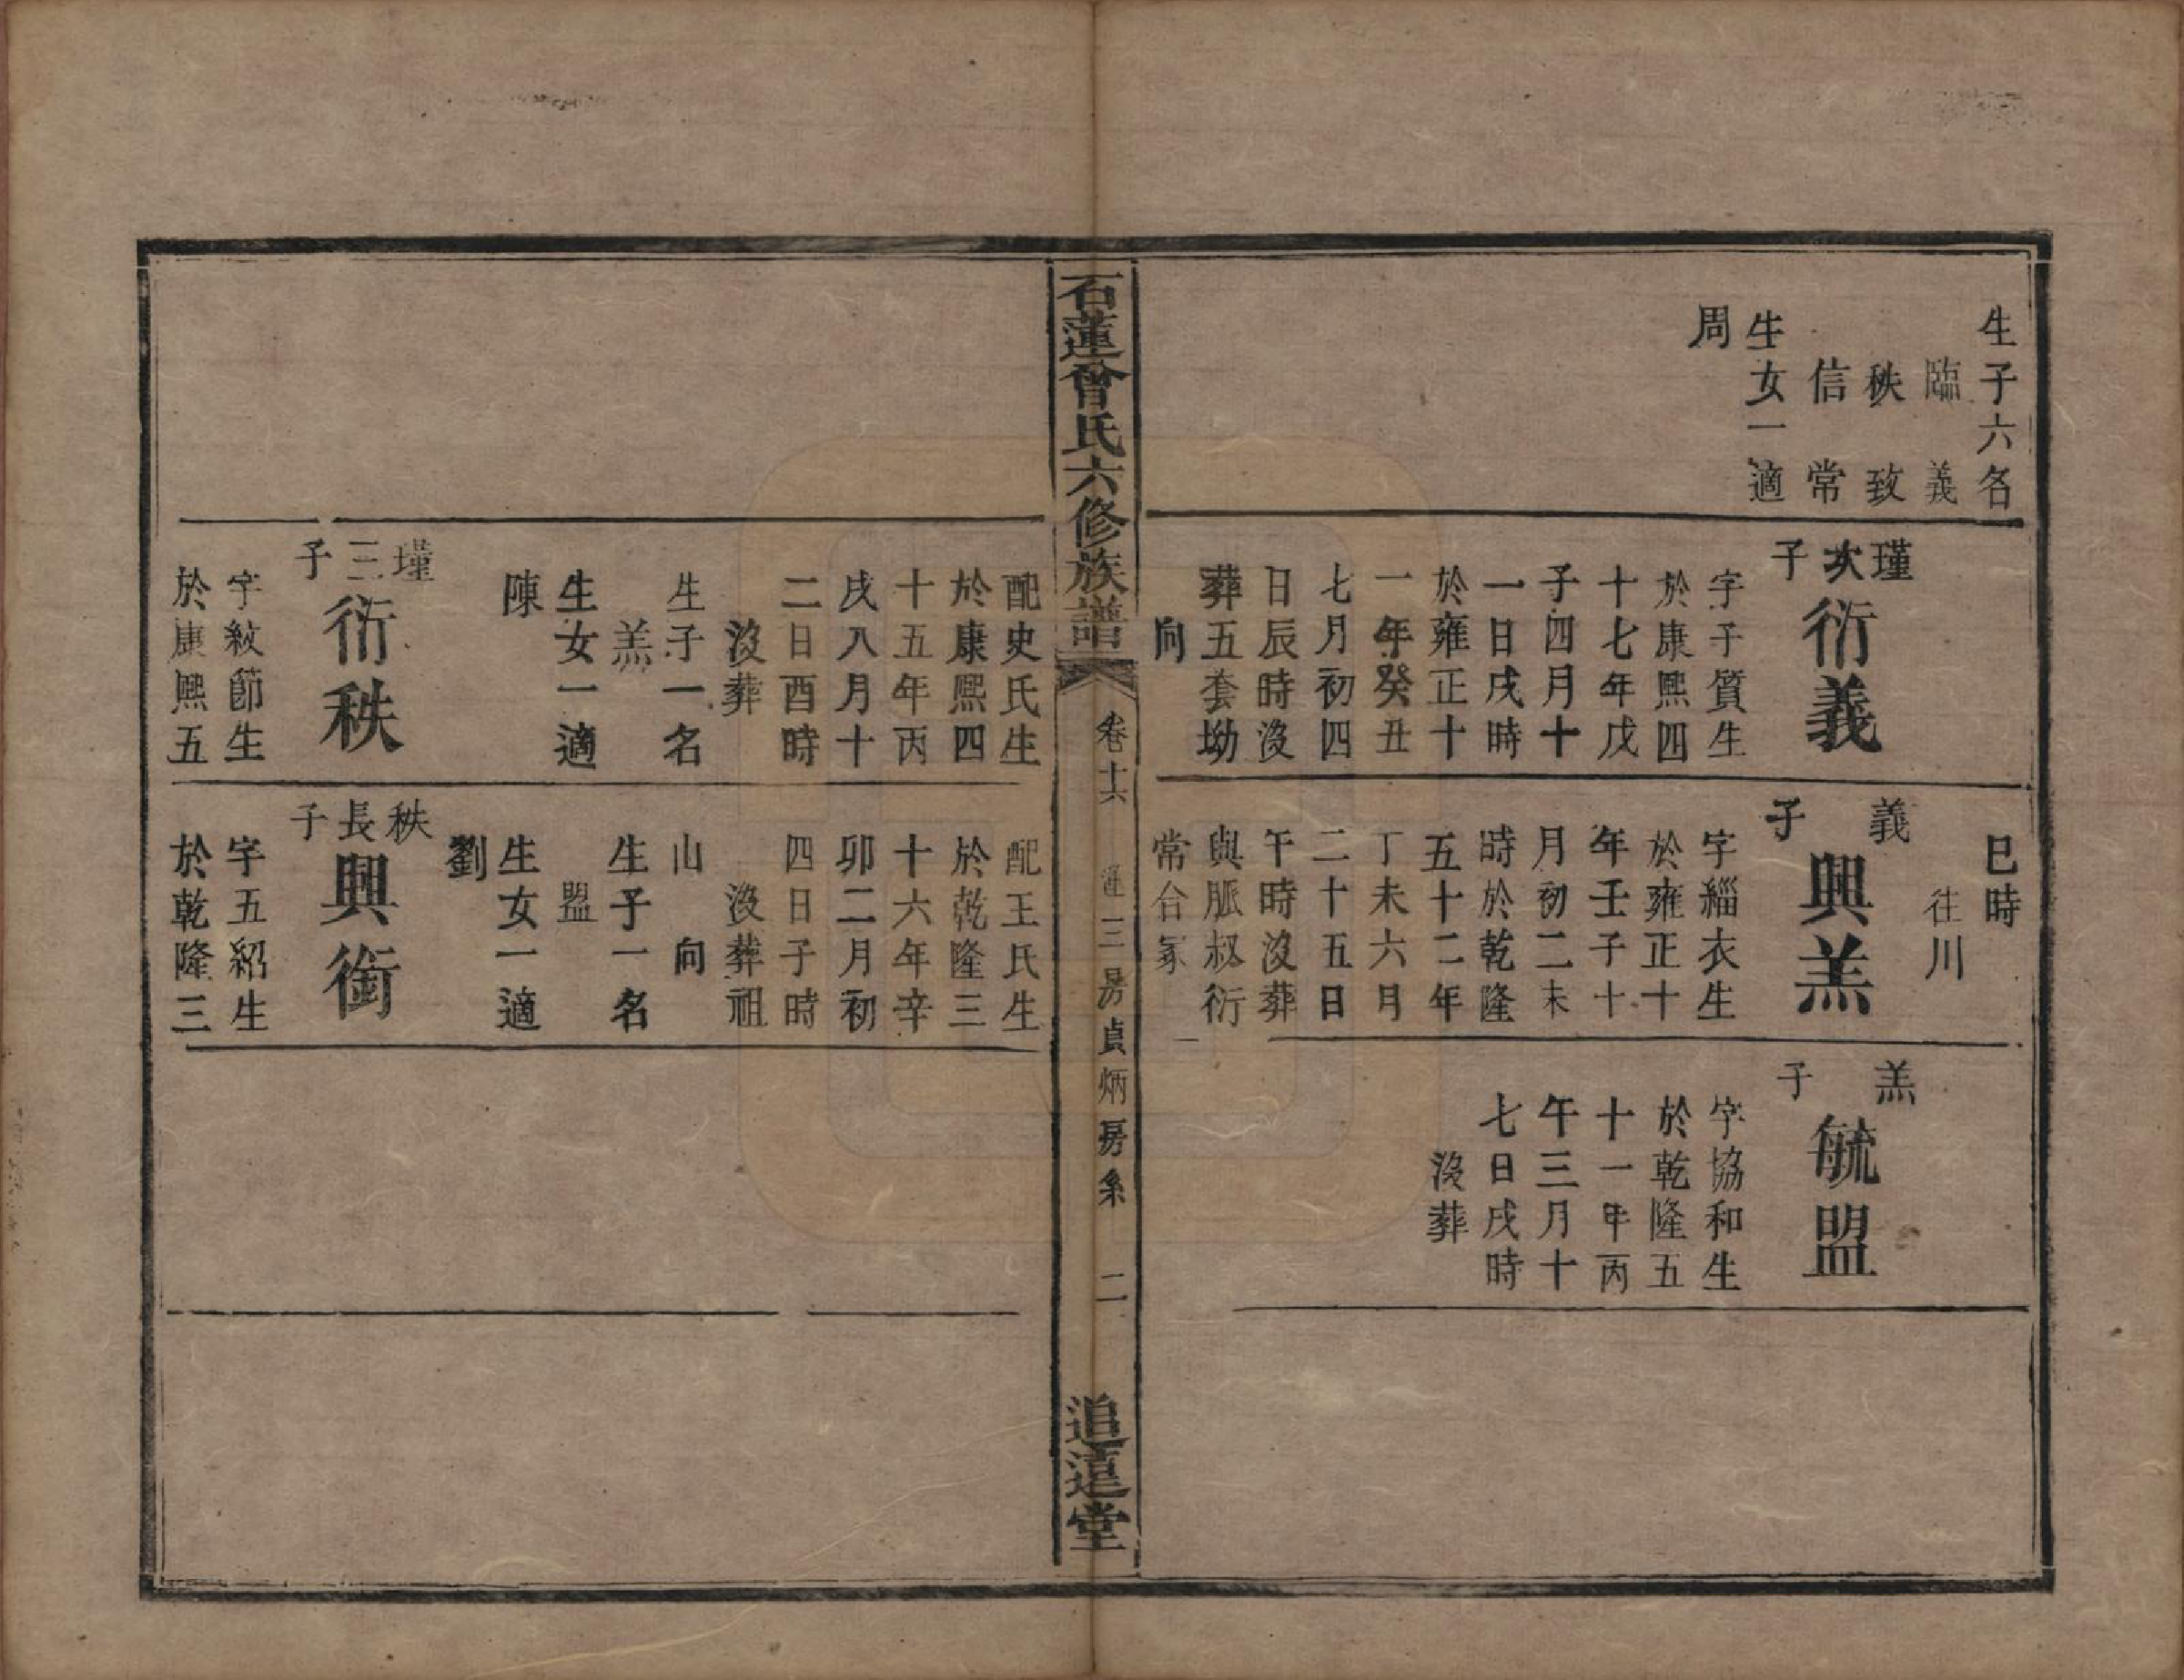 生子六名
臨義
秩致
信常
生女一適
周
瑾次子
衍義
字子質生
於康熙四
十七年戊
子四月十
一日戌時
於雍正十
一年癸丑
七月初四
日辰時沒
葬五套坳
向
巳時
往川
義子
興羔
字緇衣生
於雍正十
年壬子十
月初二未
時於乾隆
五十二年
丁未六月
二十五日
午時沒葬
與脈叔衍
常合冢
羔子
毓盟
字協和生
於乾隆五
十一年丙
午三月十
七日戌時
沒葬
石蓮曾氏六修族譜
卷十六
三房貞炳房系
二
追遠堂
配史氏生
於康熙四
十五年丙
戌八月十
二日酉時
沒葬
生子一名
羔
生女一適
陳
瑾三子
衍秩
字敘節生
於康熙五
配王氏生
於乾隆三
十六年辛
卯二月初
四日子時
沒葬祖
山向
生子一名
盟
生女一適
劉
秩長子
興銜
字五紹生
於乾隆三